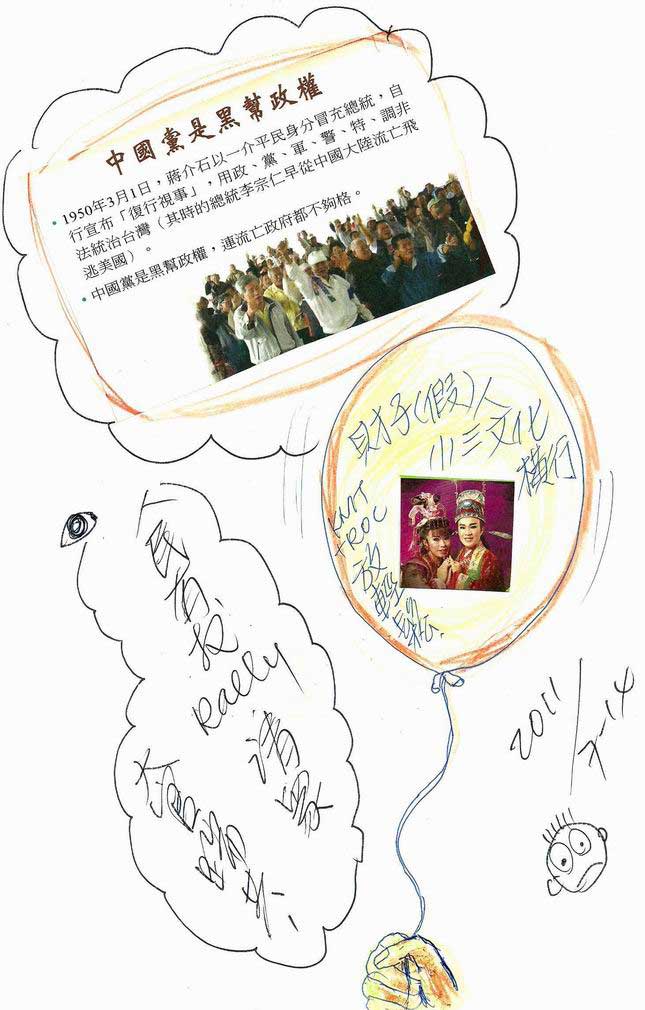 中國黨是黑幫政權
• 1950年3月1日，蔣介石以一介平民身分冒充總統，自
行宣布「復行視事」，用政、黨、軍、警、特、調非
法統治台灣（其時的總統李宗仁早從中國大陸流亡飛
逃美國）。
• 中國黨是黑幫政權，連流亡政府都不夠格。
財子(假)人
小三文化
橫行
KMT
+ROC
放
輕鬆
人民有
Rally
2011
/7-14